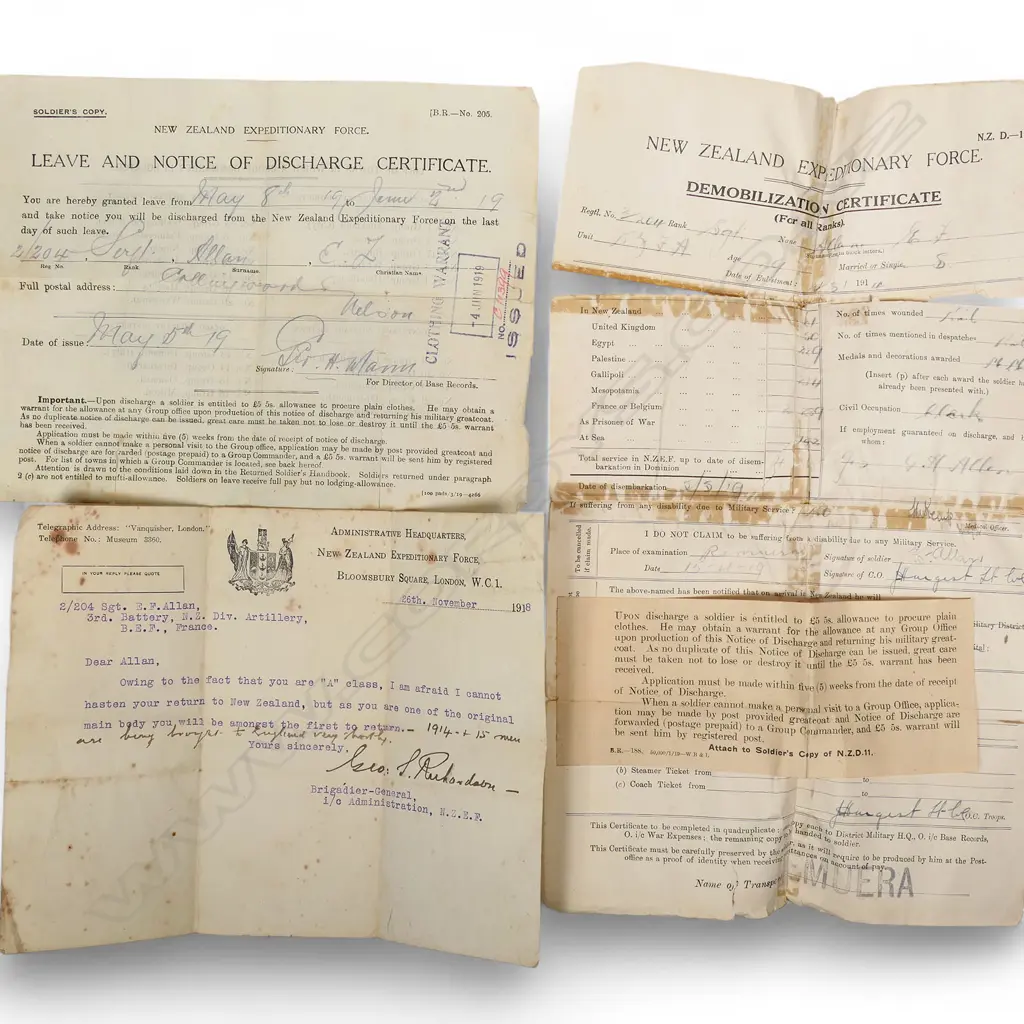 SOLDIER'S COPY.
[B.R.—No. 205.
NEW ZEALAND EXPEDITIONARY FORCE.
LEAVE AND NOTICE OF DISCHARGE CERTIFICATE.
You are hereby granted leave from May 8th 19 to June 2nd 19
and take notice you will be discharged from the New Zealand Expeditionary Force on the last
day of such leave.
2/204 Sergt. Allan, E. F.
Reg No. Rank Surname. Christian Name.
Full postal address: Collingwood
Nelson
Date of issue: May 19
Signature:
For Director of Base Records.
CLOTHING WARRANT
-4 JUN 1919
NO.
ISSUED
Important.—Upon discharge a soldier is entitled to £5 5s. allowance to procure plain clothes. He may obtain a
warrant for the allowance at any Group office upon production of this notice of discharge and returning his military greatcoat.
As no duplicate notice of discharge can be issued, great care must be taken not to lose or destroy it until the £5 5s. warrant
has been received.
Application must be made within five (5) weeks from the date of receipt of notice of discharge.
When a soldier cannot make a personal visit to the Group office, application may be made by post provided greatcoat and
notice of discharge are forwarded (postage prepaid) to a Group Commander, and £5 5s. warrant will be sent him by registered
post. For list of towns in which a Group Commander is located, see back hereof
Attention is drawn to the conditions laid down in the Returned Soldier's Handbook. Soldiers returned under paragraph
2 (c) are not entitled to mufti-allowance. Soldiers on leave receive full pay but no lodging-allowance.
[100 pads 3/19—4266
Telegraphic Address: "Vanquisher, London."
Telephone No.: Museum 3360.
IN YOUR REPLY PLEASE QUOTE
Administrative Headquarters,
New Zealand Expeditionary Force,
Bloomsbury Square, London, W.C.1.
26th. November 1918
2/204 Sgt. E.F.Allan,
3rd. Battery, N.Z. Div. Artillery,
B.E.F., France.
Dear Allan,
Owing to the fact that you are "A" class, I am afraid I cannot
hasten your return to New Zealand, but as you are one of the original
main body you will be amongst the first to return. — 1914 + 15 men
are being brought to England very shortly.
Yours sincerely,
Geo. S. Richardson
Brigadier-General,
i/c Administration, N.Z.E.F.
N.Z. D.—1
NEW ZEALAND EXPEDITIONARY FORCE.
DEMOBILIZATION CERTIFICATE
(For all Ranks).
Regtl. No. 2/204 Rank Sgt. Name Allan E F
Unit N Z F A Age Married or Single S
Date of Enlistment:
In New Zealand
United Kingdom
Egypt
Palestine
Gallipoli
Mesopotamia
France or Belgium
As Prisoner of War
At Sea
Total service in N.Z.E.F. up to date of disem-
barkation in Dominion
Date of disembarkation
No. of times wounded
No. of times mentioned in despatches
Medals and decorations awarded
(Insert (p) after each award the soldier h
already been presented with.)
Civil Occupation Clerk
If employment guaranteed on discharge, and
whom:
If suffering from any disability due to Military Service?
Medical Officer.
To be cancelled if claim made.
I DO NOT CLAIM to be suffering from a disability due to any Military Service.
Place of examination
Signature of soldier
Date
Signature of C.O. Hargest
The above-named has been notified that on arrival in New Zealand he will
Military District
Upon discharge a soldier is entitled to £5 5s. allowance to procure plain
clothes. He may obtain a warrant for the allowance at any Group Office
upon production of this Notice of Discharge and returning his military great-
coat. As no duplicate of this Notice of Discharge can be issued, great care
must be taken not to lose or destroy it until the £5 5s. warrant has been
received.
Application must be made within five (5) weeks from the date of receipt
of Notice of Discharge.
When a soldier cannot make a personal visit to a Group Office, applica-
tion may be made by post provided greatcoat and Notice of Discharge are
forwarded (postage prepaid) to a Group Commander, and £5 5s. warrant will
be sent him by registered post.
B.R.—188. Attach to Soldier's Copy of N.Z.D.11.
(b) Steamer Ticket from to
(c) Coach Ticket from to
Hargest O.C. Troops.
This Certificate to be completed in quadruplicate; copy each to District Military H.Q., O. i/c Base Records,
O. i/c War Expenses; the remaining copy handed to soldier.
This Certificate must be carefully preserved by the as it will require to be produced by him at the Post-
office as a proof of identity when receiving remittances on account of pay.
Name of Transport